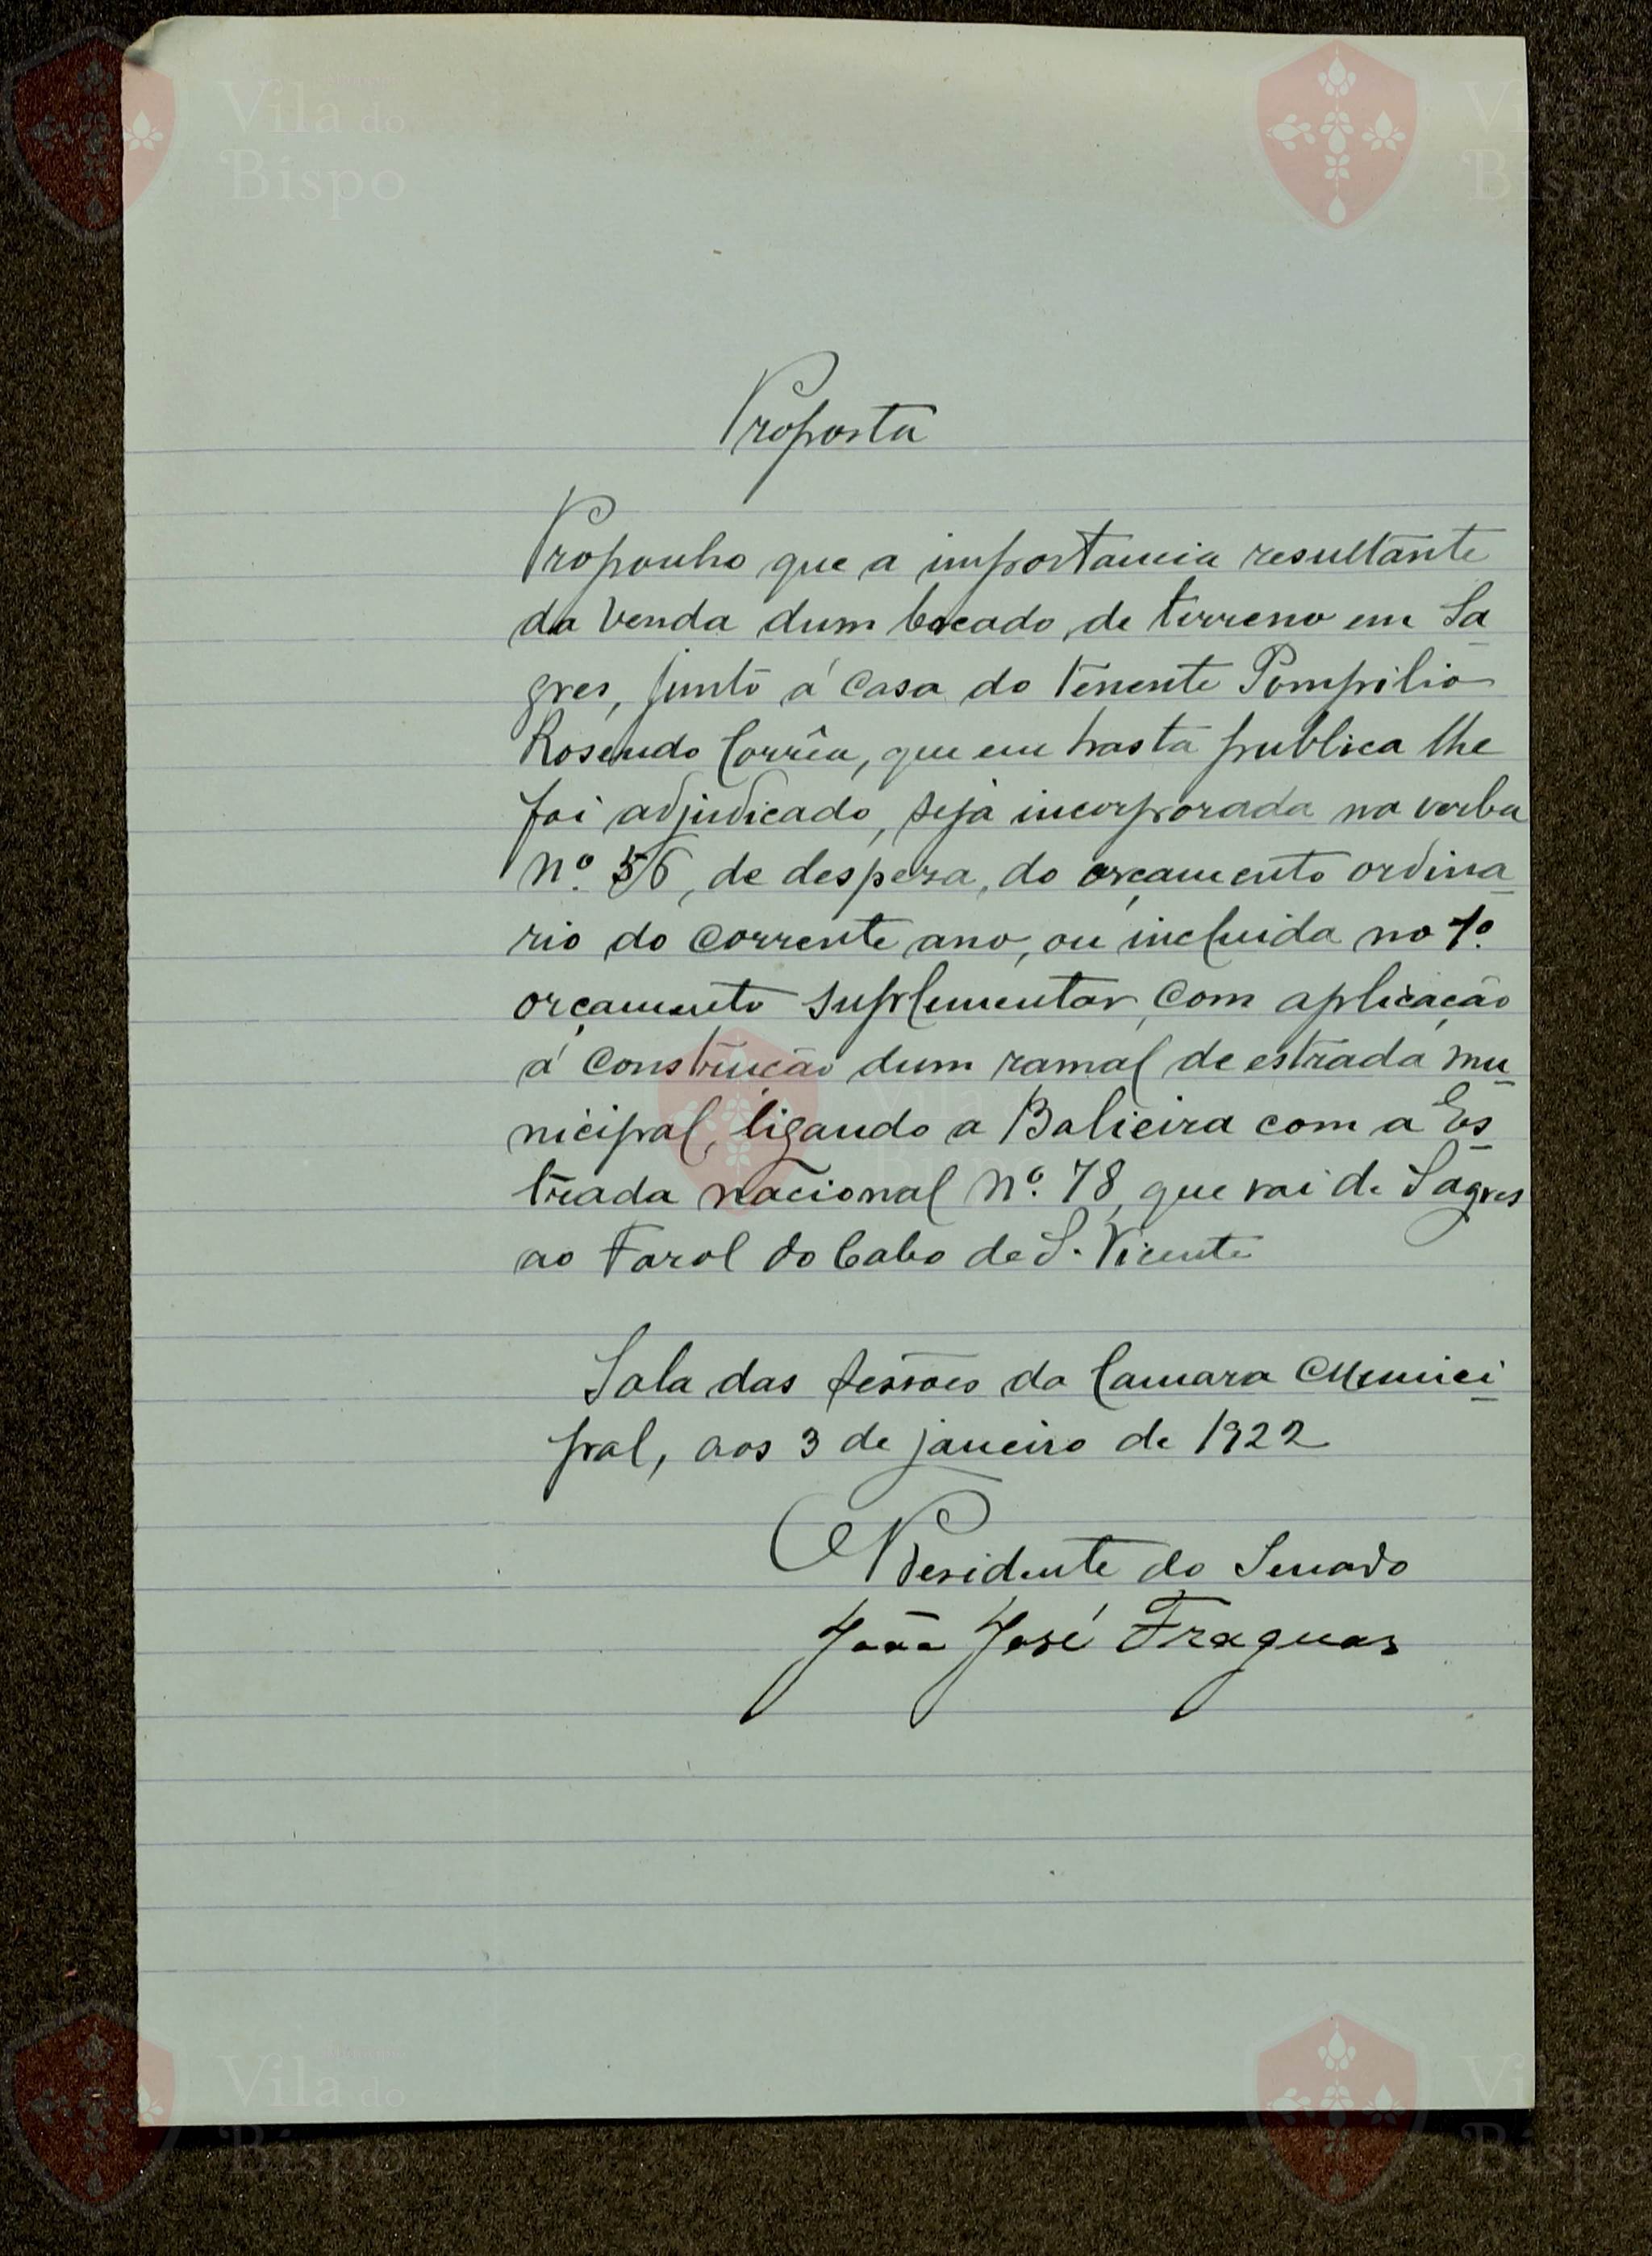 Proposta
Proponho que a importancia resultante
da venda dum bocado de terreno em Sa
gres, junto á casa do tenente Pompilio
Rosendo Corrêa, que em hasta publica lhe
foi adjudicado, seja incorporada na verba
Nº. 56, de despesa, do orçamento ordina
rio do corrente ano, ou incluida no 1º.
orçamento suplementar, com aplicação
á construção dum ramal de estrada mu
nicipal, ligando a Balieira com a Es
trada nacional Nº. 78, que vai de Sagres
ao Farol do Cabo de S. Vicente
Sala das sessões da Camara Munici
pal, aos 3 de janeiro de 1922
O Presidente do Senado
João José Fraguas
Vila do
Bispo
Vila do
Bispo